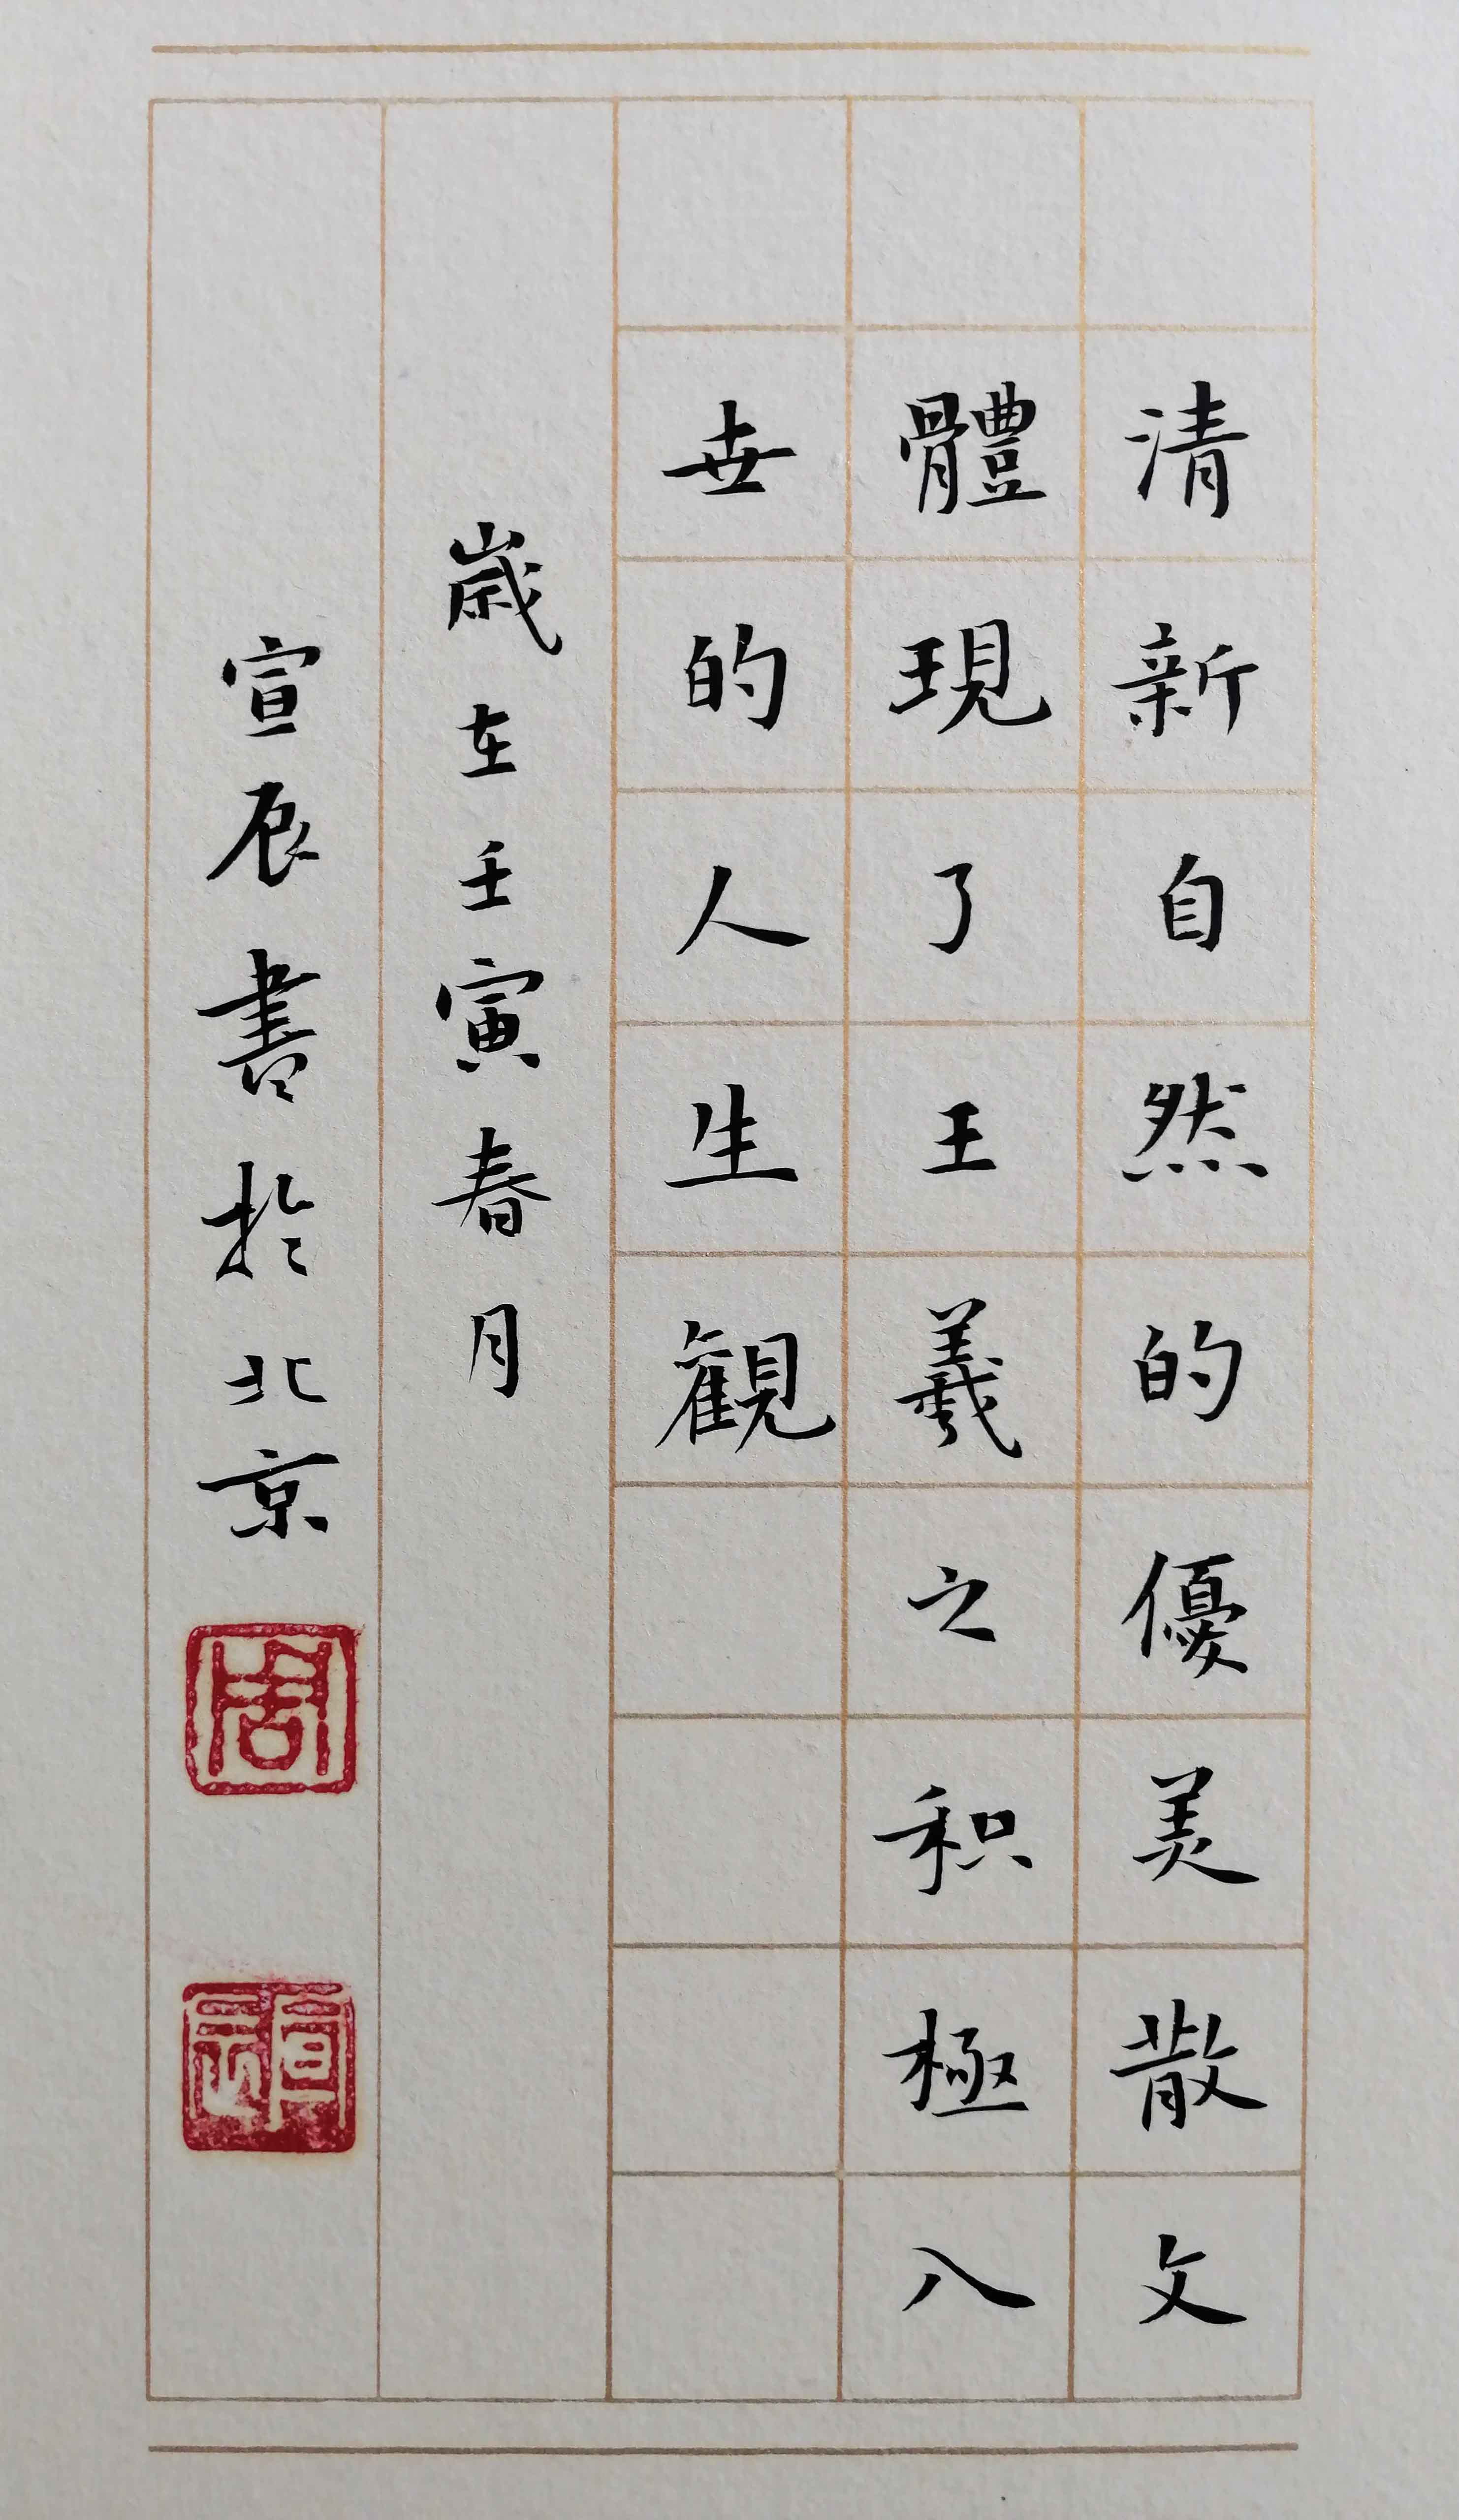 清新自然的優美散文
體現了王羲之积極入
世的人生觀
歲在壬寅春月
宣辰書於北京
周
宣辰